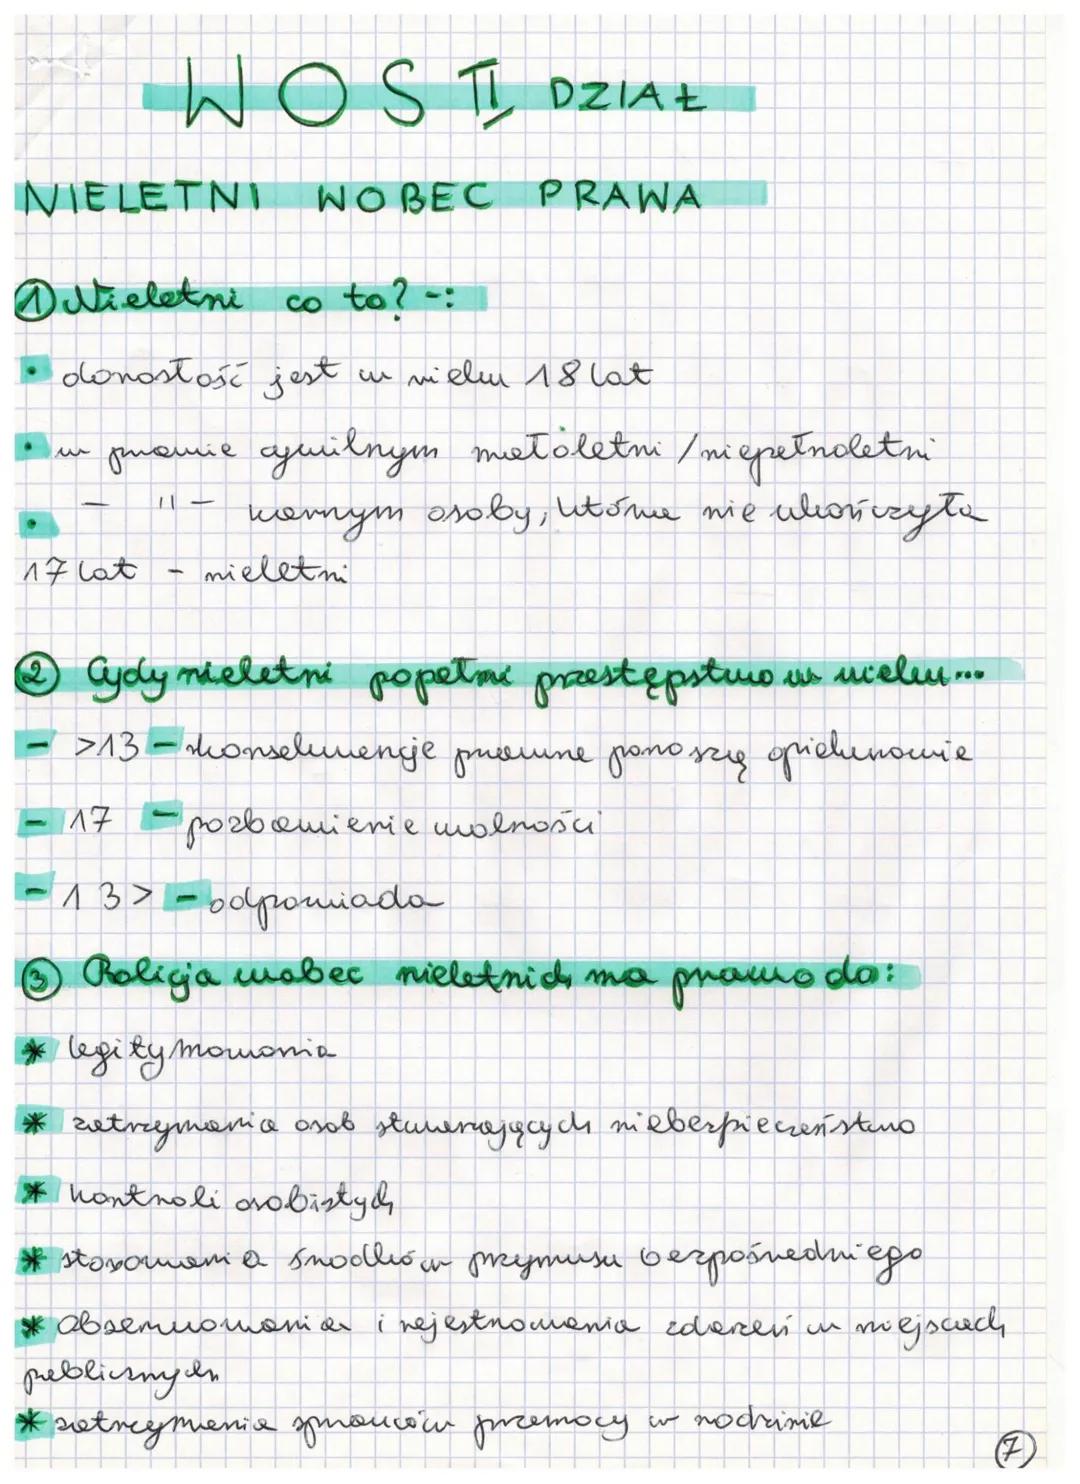 WOS II DZIAŁ
NIELETNI WOBEC PRAWA
① Nieletni co to? -:
• dorosłość jest w wieku 18 lat
• w prawie cywilnym małoletni / niepełnoletni
• - 11 - karnym osoby, która nie ukończyła
17 lat - nieletni
② Gdy nieletni popełni przestępstwo w wieku...
- >13 - konsekwencje prawne ponoszą opiekunowie
- 17 - pozbawienie wolności
- 13> - odpowiada
③ Policja wobec nieletnich ma prawo do:
* legitymowania
* zatrzymania osob stwarzających niebezpieczeństwo
* kontroli osobistych
* stosowania środków przymusu bezpośredniego
* obserwowania i rejestrowania zdarzeń w miejscach
publicznych
* zatrzymania sprawców przemocy w rodzinie
7